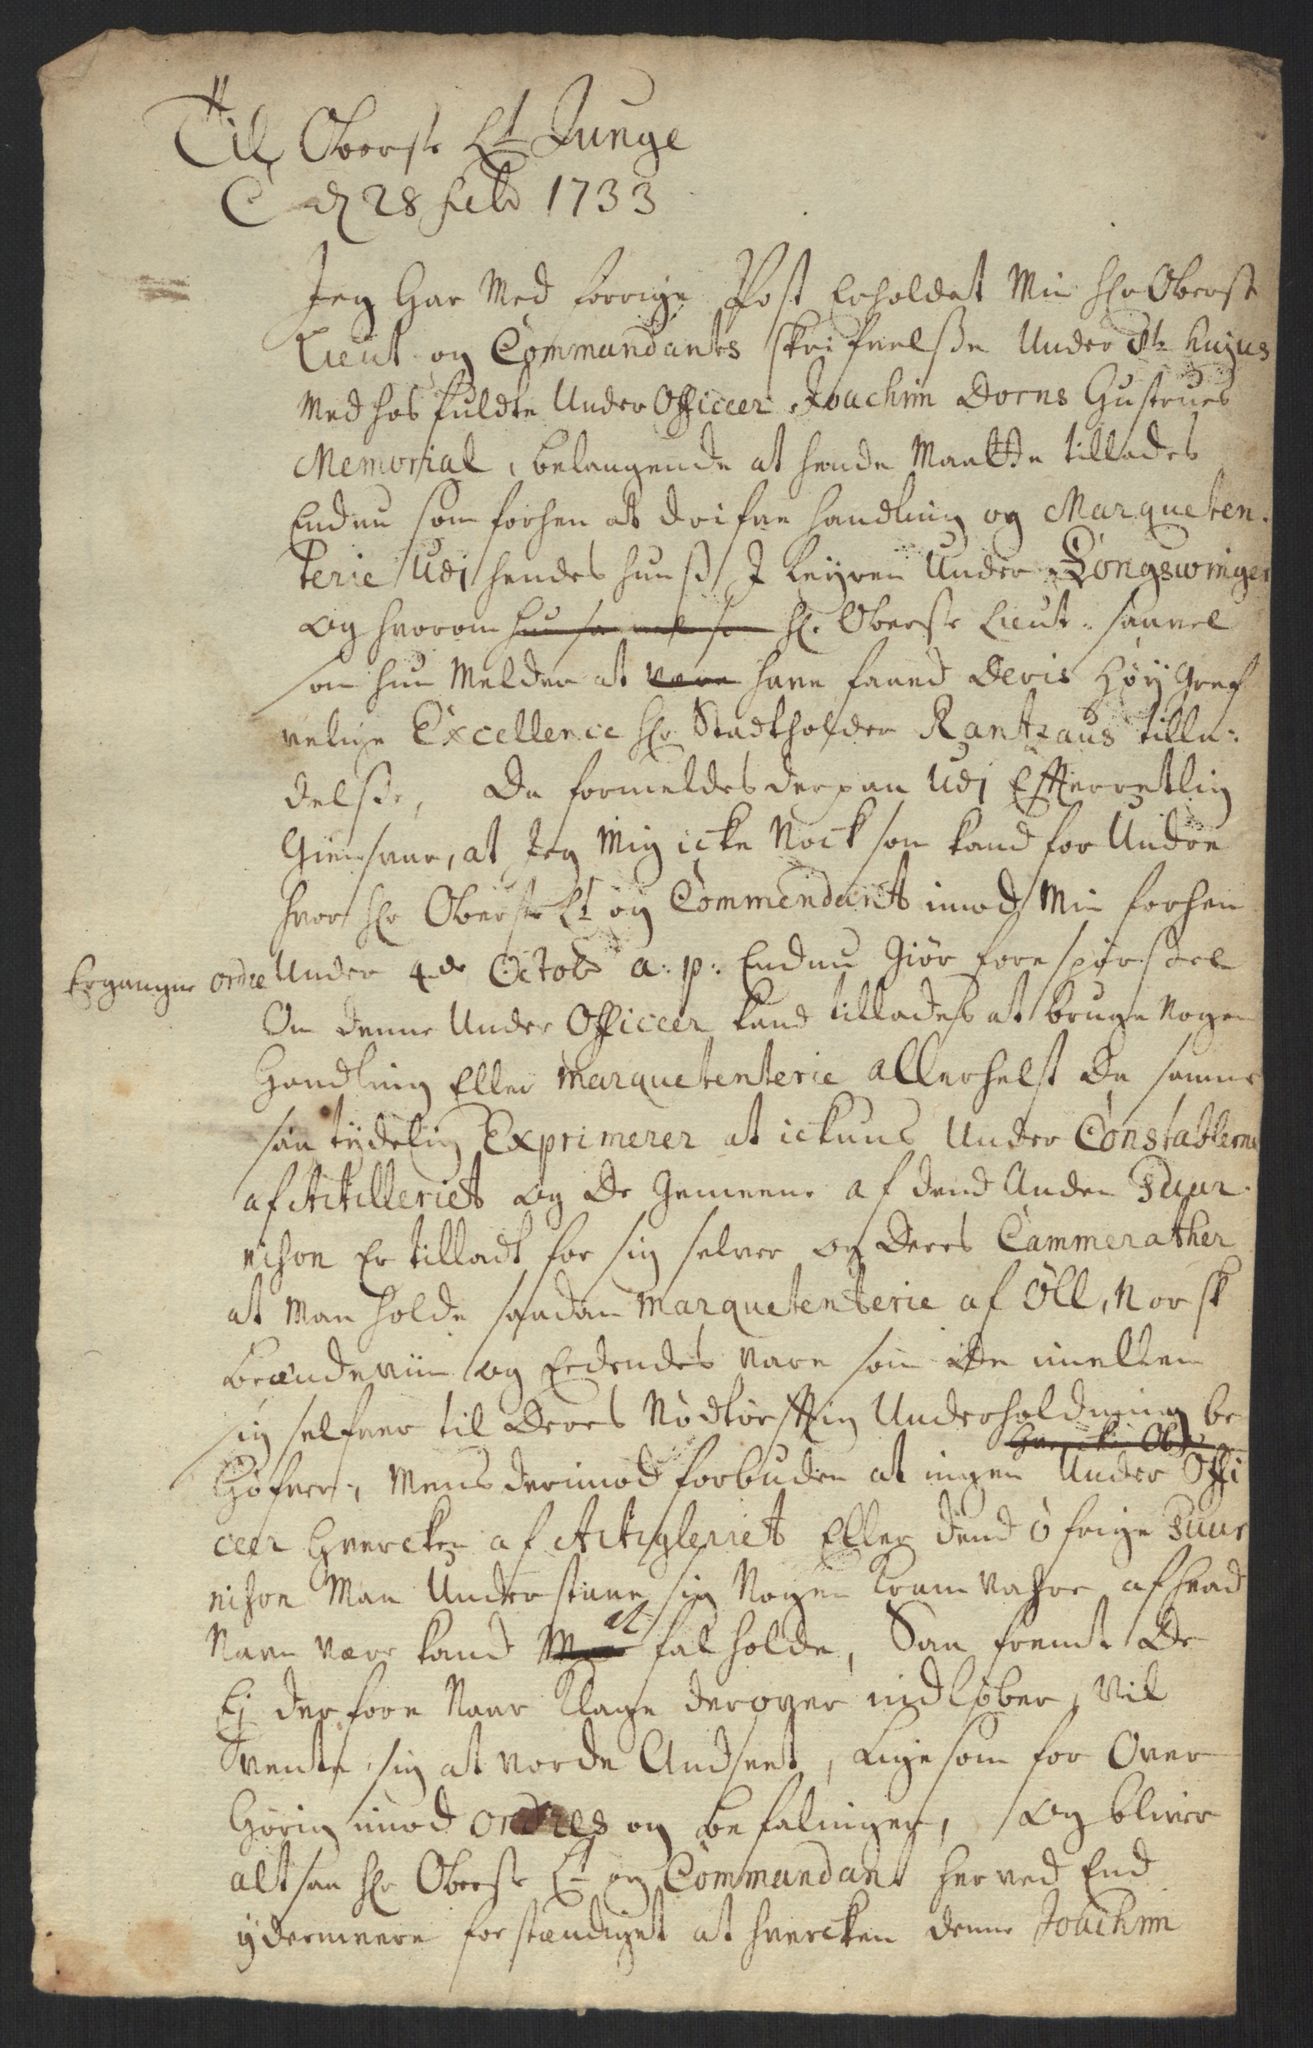 Til Oberste Lt Junge
C d 28 febr 1733
Jeg Har Med forrige Post Erholdet Min Hr Oberst
Lieut og Commandants skrifvelsse Under huius
Med hos fuldte Under Officeer Joachim Dorns Hustrues
Memorial, belangende at hende Maatte tillades
Endnu som forhen at drifve handling og Marqueten-
terie Udj hendes huuss I Leyren Under Kongswinger
og hvorom hun saa vel som Hr. Oberste Lieut. saavel
som hun Melder at være have faaed Deris Høy Gref
velige Excellence Hr Stadtholder Rantzaus tilla-
delsse, Da formeldes derpaa Udj Efterretlig
Giensvar, at Jeg Mig icke Nocksom kand for Undre
hvor Hr Oberste Lt og Commendant imod Min forhen
Ergangne ordre Under 4de Octob a: p: Endnu Giør forespørsel
Om denne Under Officeer kand tillades at bruge Nogen
Handling Eller Marquetenterie allerhelst Da samme
saa tydelig Exprimerer at ickuns Under Constablerne
af Artilleriet og De Gemeene af dend Anden Guar-
nison Er tilladt for sig selver og Deres Cammerather
at Maa holde saadan Marquetenterie af Øll, Norsk
Brændeviin og Eedendes Vare som De imellem
sig selfver til Deres Nødtørftig Underholdning be
Høfver, Mens derimod forbuden at ingen Under Offi
ceer Hvercken af Artigleriet Eller dend Øfrige Guar
nison Maa Understaae sig Nogen Kram Vahre af hvad
Navn være kand Maa at fal holde, Saa fremt De
Ej derfore Naar Klage derover indløber, Vil
Vente sig at vorde Andseet, Ligesom for Over
Hørig imod ordres og befalinger, og bliver
altsaa Hr Oberste Lt og Commandant herved End
ydermeere forstændiget at hvercken denne Joachim